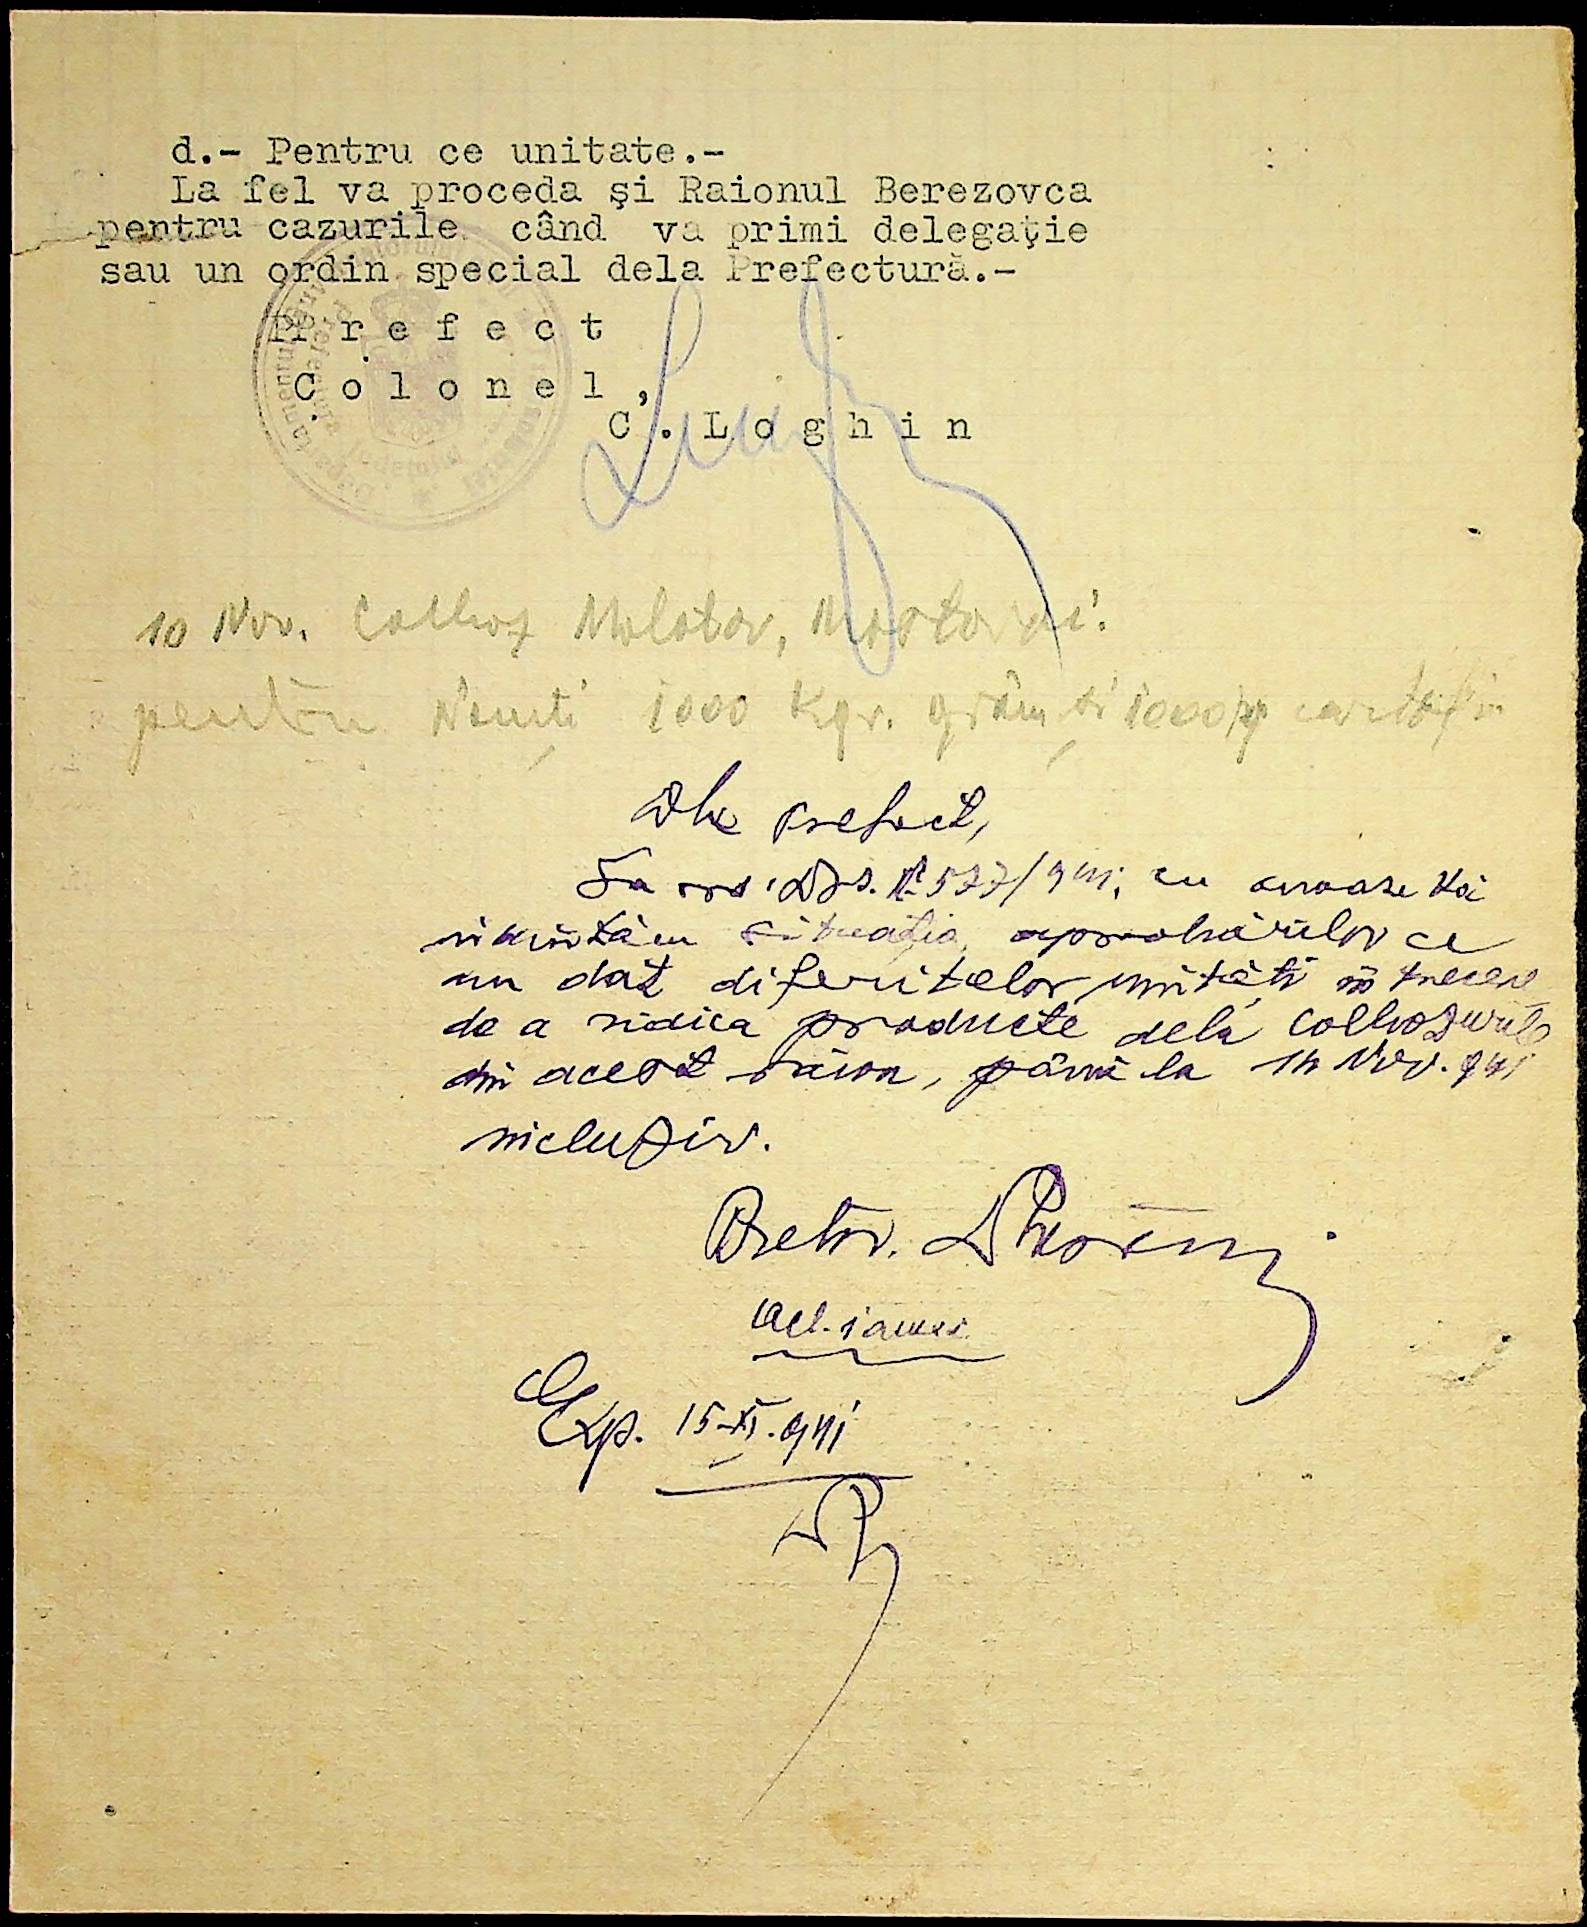 d.- Pentru ce unitate.-
La fel va proceda şi Raionul Berezovca
pentru cazurile când va primi delegaţie
sau un ordin special dela Prefectură.-
P r e f e c t
C o l o n e l ,
C . L o g h i n
10 Nov. Colhoz Molotov,
pentru Nemţi 1000 Kgr. grâu şi 1000 kg cartofi
Dle Prefect,
La ord. Dvs. № 577/941, cu onoare Vă
înaintăm situaţia aprobărilor ce
am dat diferitelor unităţi în
de a ridica producte dela colhozurile
din acest raion, până la 14 Nov. 941
inclusiv.
Pretor.
Exp. 15-XI-941